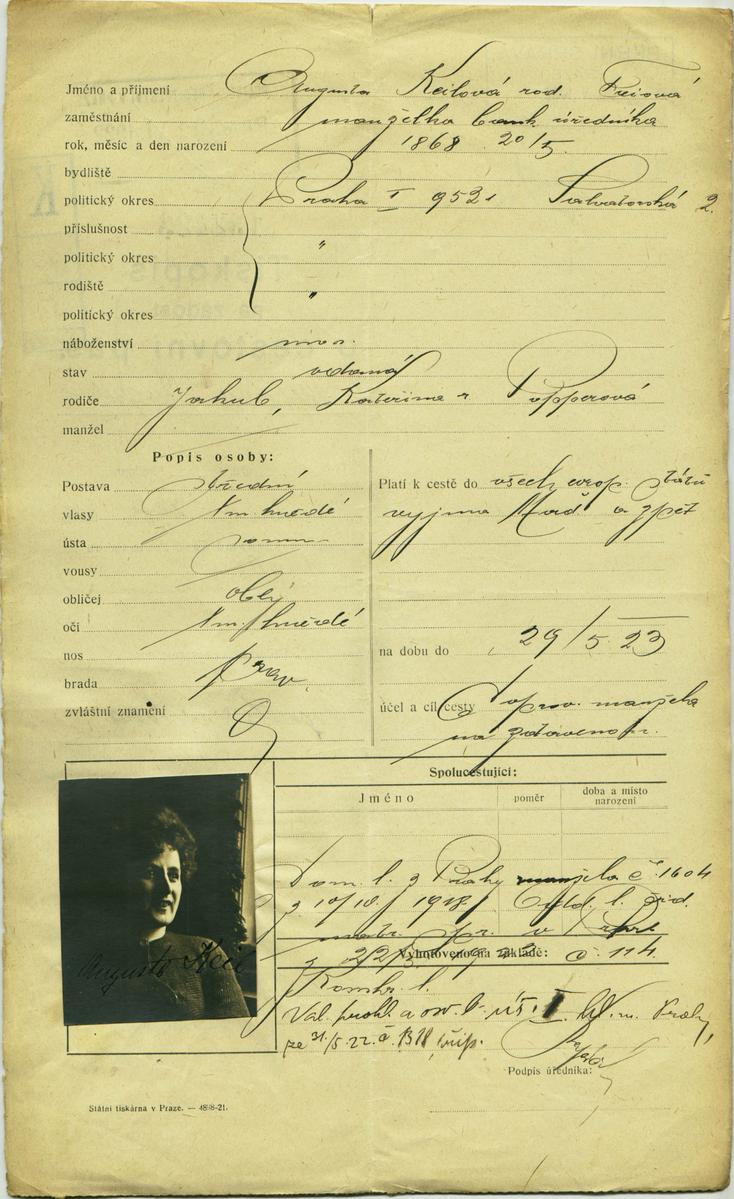 Jméno a příjmení Augusta Keilová roz. Freiová
zaměstnání manželka bank. úředníka
rok, měsíc a den narození 1868 20/5.
bydliště
politický okres Praha I 952 Salvatorská 2.
příslušnost "
politický okres
rodiště "
politický okres
náboženství mos.
stav vdaná
rodiče Jakub, Kateřina r. Popperová
manžel
Popis osoby:
Postava střední
vlasy tm. hnědé
ústa norm.
vousy
obličej oblý
oči tm. hnědé
nos
brada prav.
zvláštní znamení
Platí k cestě do všech evrop. států
vyjma Maď. a zpět
na dobu do 29/5 23
účel a cíl cesty manžela
na zotavenou.
Spolucestující:
Jméno poměr doba a místo narození
Dom. l. z Prahy manžela č. 1604
z 10/10. 1918.
Vyhotoveno na základě: č. 114.
Val. prohl. a osv. b. ú. I. hl. m. Prahy,
ze 31/5. 22. č. 1318 přip.
Augusta Keil
Podpis úředníka:
Státní tiskárna v Praze. — 4898-21.